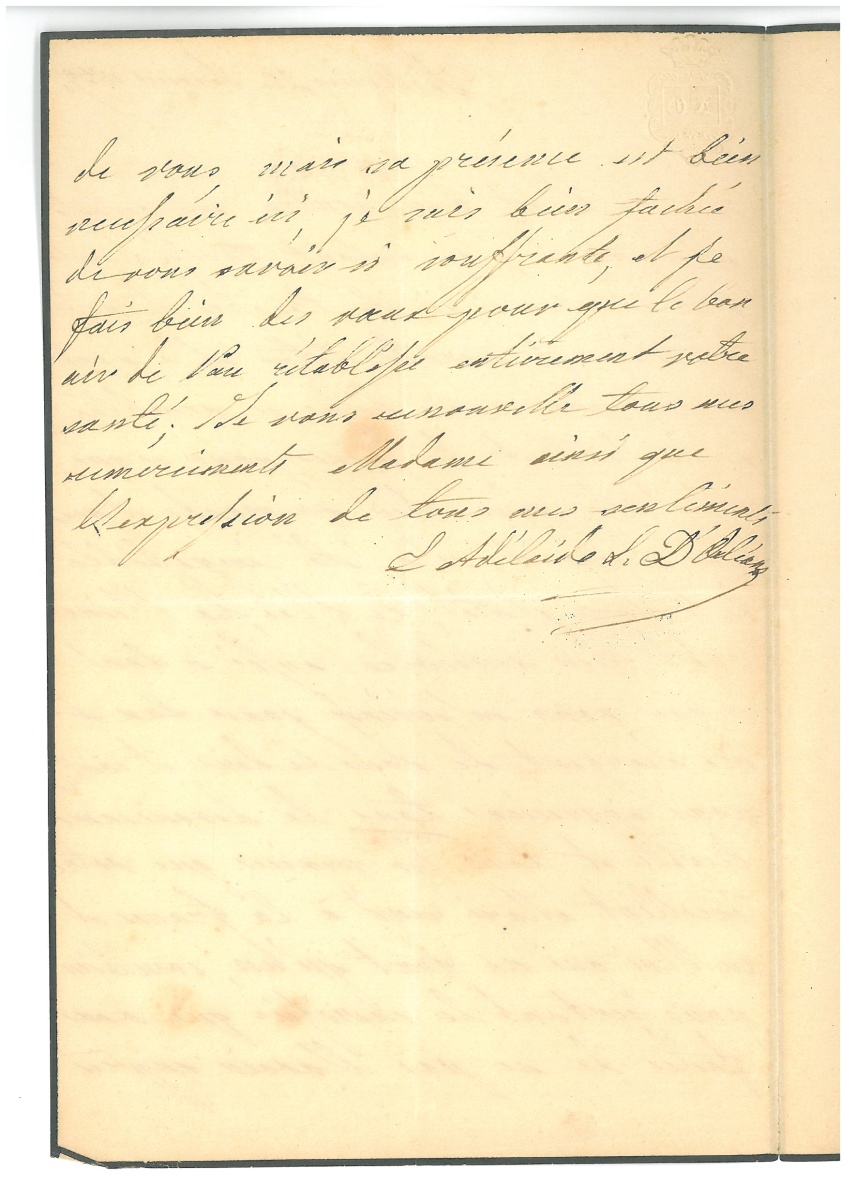 de vous mais sa présence est bien
necessaire ici, je suis bien fachée
de vous savoir si souffrante, et je
fais bien des vœux pour que le bon
air de Pau rétablisse entièrement votre
santé; Je vous renouvelle tous mes
remerciments Madame ainsi que
l'expression de tous mes sentiments
E Adélaïde L. D'Orléans